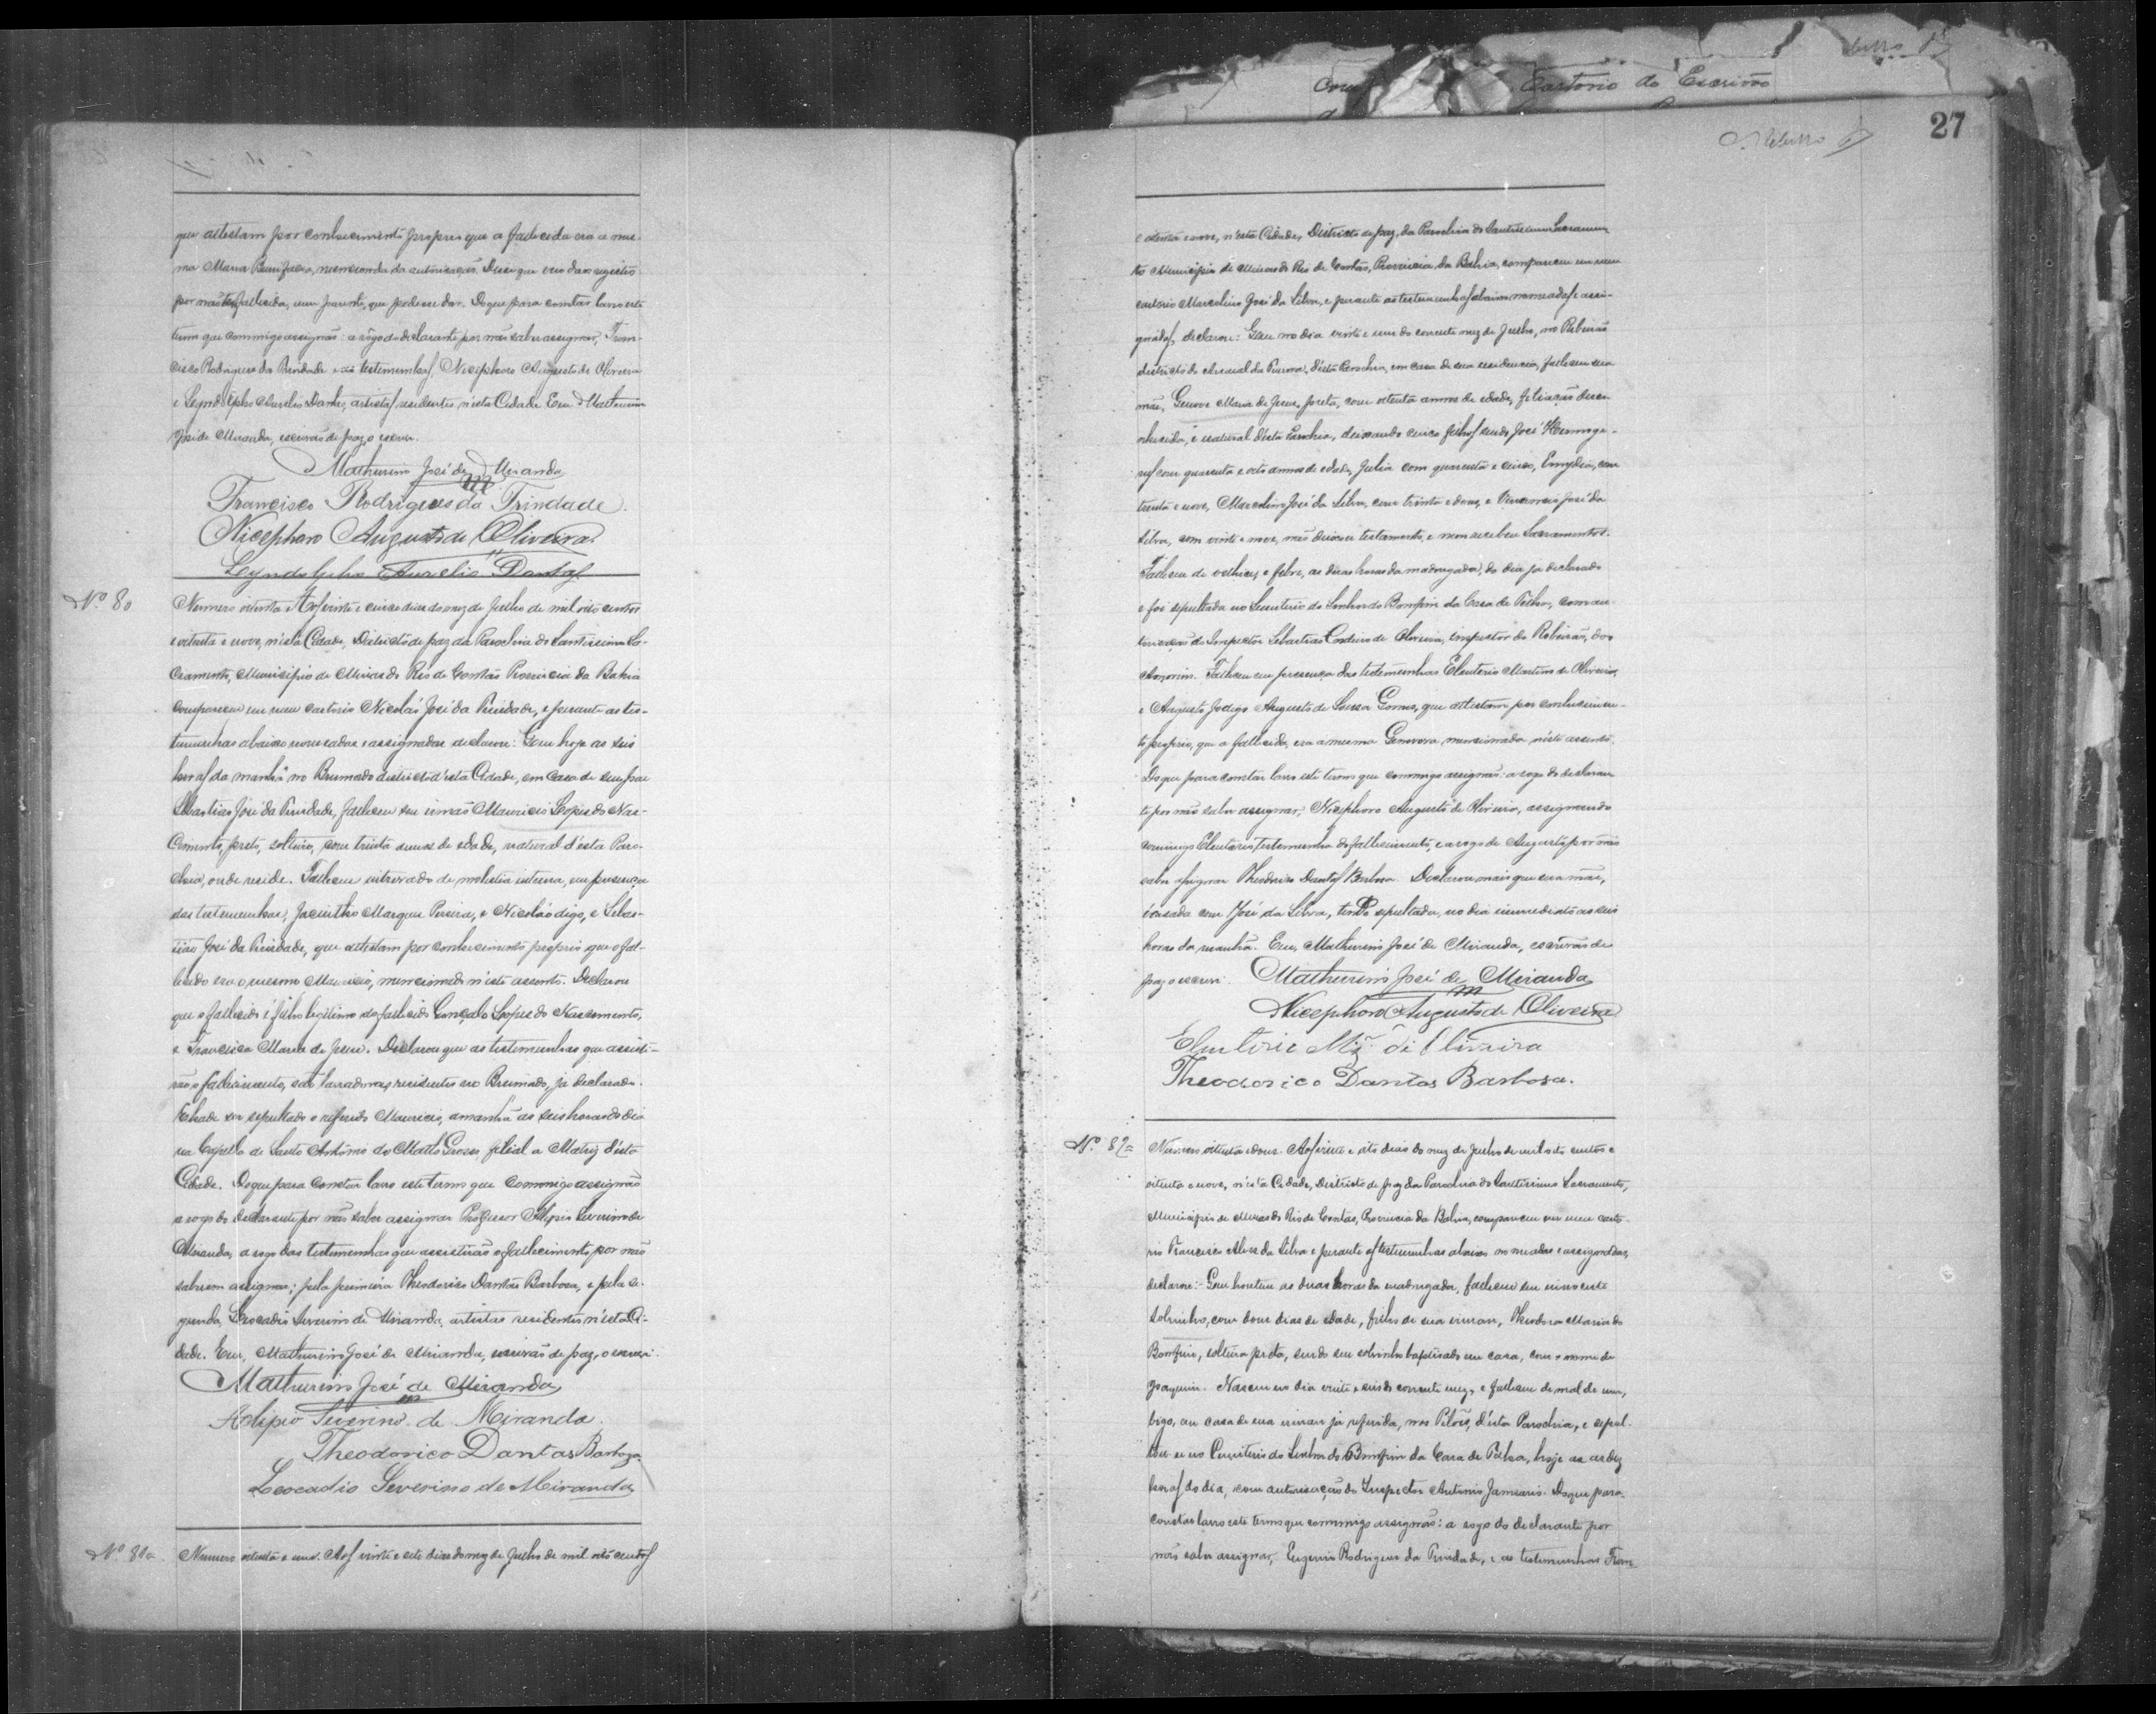 Cartorio do Escrivão
27
que attestam por conhecimento proprio que a fallecida era a mes-
ma Maria Bonifacia, mencionada da autorisação. Disse que
por não ter fallecida, um parente, que podesse dar. Do que para constar lavro este
termo que commigo assignão: a rôgo do declarante por não saber assignar, Fran-
cisco Rodrigues da Trindade e as testemunhas Nicephoro Augusto de Oliveira
e Lyndolpho Aurelio Dantas, artistas residentes n'esta Cidade. Eu Mathurino
José de Miranda, escrivão de paz, o escrevi.
Mathurino José de Miranda
Francisco Rodrigues da Trindade.
Nicephoro Augusto de Oliveira
Lyndolpho Aurelio Dantas
Nº 80
Numero oitenta. Aos vinte e cinco dias do mez de Julho de mil oito centos
e oitenta e nove, n'esta Cidade, Districto de paz da Parochia do Santissimo Sa-
cramento, Municipio de Minas do Rio de Contas Provincia da Bahia
compareceu em meu cartorio Nicolau José da Trindade, e perante as tes-
temunhas abaixo nomeadas e assignadas declarou: Que hoje as seis
horas da manhã no Brumado districto d'esta Cidade, em casa de seu pae
Sebastião José da Trindade, falleceu seu irmão Mauricio Lopes do Nas-
cimento, preto, solteiro, com trinta annos de edade, natural d'esta Paro-
chia, onde reside. Falleceu entrevado de molestia interna, em presença
das testemunhas, Jacintho Marques Pereira, e Nicoláo digo, e Sebas-
tião José da Trindade, que attestam por conhecimento proprio que o fal-
lecido era o mesmo Mauricio, mencionado n'este assento. Declarou
que o fallecido é filho legitimo do fallecido Gonçalo Lopes do Nascimento,
e Francisca Maria de Jesus. Declarou que as testemunhas que assisti-
rão o fallecimento, são lavradores, residentes no Brumado, já declarado.
ha de ser sepultado o referido Mauricio, amanhã as seis horas do dia
na Capella de Santo Antonio do Matto Grosso filial a Matriz d'esta
Cidade. Do que para constar lavro este termo que commigo assignão
a rogo do declarante por não saber assignar Professor Alipio Severino de
Miranda, a rogo das testemunhas que assistirão o fallecimento por não
saberem assignar; pela primeira Theodorico Dantas Barbosa, e pela se-
gunda, Leocadio Severino de Miranda, artistas residentes n'esta Ci-
dade. Eu, Mathurino José de Miranda, escrivão de paz, o escrevi.
Mathurino José de Miranda
Alipio Severino de Miranda.
Theodorico Dantas Barboza
Leocadio Severino de Miranda
Nº 81
Numero oitenta e um. Aos vinte e sete dias do mez de Julho de mil oito centos
e oitenta e nove, n'esta Cidade, Districto de paz, da Parochia do Santissimo Sacramen-
to Municipio de Minas do Rio de Contas, Provincia da Bahia, compareceu em meu
cartorio Marcolino José da Silva, e perante as testemunhas abaixo nomeadas e assi-
gnadas, declarou: Que no dia vinte e um do corrente mez de Julho, no Ribeirão
districto do Arraial da Furna, d'esta Parochia, em casa de sua residencia, falleceu sua
mãe, Genove Maria de Jesus, preta, com oitenta annos de edade, filiação desco-
nhecida, é natural d'esta Parochia, deixando cinco filhos sendo José Hermoge-
nes com quarenta e oito annos de edade, Julia com quarenta e cinco, Emygdia, com
trinta e nove, Marcolino José da Silva, com trinta e dous, e Venancio José da
Silva, com vinte e nove, não deixou testamento, e nem recebeu Sacramentos.
Falleceu de velhice, e febre, as duas horas da madrugada, do dia já declarado
e foi sepultada no Cemiterio do Senhor do Bomfim da Casa de Telha, com au-
torisação do Inspector Sebastião Cordeiro de Oliveira, inspector do Ribeirão, dos
Amorins. Falleceu em presença das testemunhas Eleuterio Martins de Oliveira,
e Augusto Jodigo, Augusto de Souza Gomes, que attestam por conhecimen-
to proprio, que a fallecida, era a mesma Genoveva mencionada n'este assento.
Do que para constar lavro este termo que commigo assignão: a rogo do declaran-
te por não saber assignar, Nicephoro Augusto de Oliveira, assignando
commigo Eleuterio, testemunha do fallecimento, e a rogo de Augusto por não
saber assignar Theodorico Dantas Barbosa. Declarou mais que sua mãe,
é casada com José da Silva, tendo sepultada, no dia immediato as seis
horas da manhã. Eu, Mathurino José de Miranda, escrivão de
paz o escrevi. Mathurino José de Miranda
Nicephoro Augusto de Oliveira
Eleuterio Miz de Oliveira
Theodorico Dantas Barbosa.
Nº 82
Numero oitenta e dous. Aos vinte e oito dias do mez de Julho de mil oito centos e
oitenta e nove, n'esta Cidade, Districto de paz da Parochia do Santissimo Sacramento,
Municipio de Minas do Rio de Contas, Provincia da Bahia, compareceu em meu carto-
rio Francisco Alves da Silva e perante as testemunhas abaixo nomeadas e assignadas,
declarou: Que hontem as duas horas da madrugada, falleceu seu innocente
sobrinho, com dous dias de edade, filho de sua irman, Theodora Maria do
Bomfim, solteira preta, sendo seu sobrinho baptisado em casa, com o nome de
Joaquim. Nasceu no dia vinte e seis do corrente mez, e falleceu de mal de um-
bigo, em casa de sua irman já referida, nos Pilões, d'esta Parochia, e sepul-
tou-se no Cemiterio do Senhor do Bomfim da Casa de Telha, hoje as dez
horas do dia, com autorisação do Inspector Antonio Januario. Do que para
constar lavro este termo que commigo assignão: a rogo do declarante por
não saber assignar, Eugenio Rodrigues da Trindade, e as testemunhas Fran-